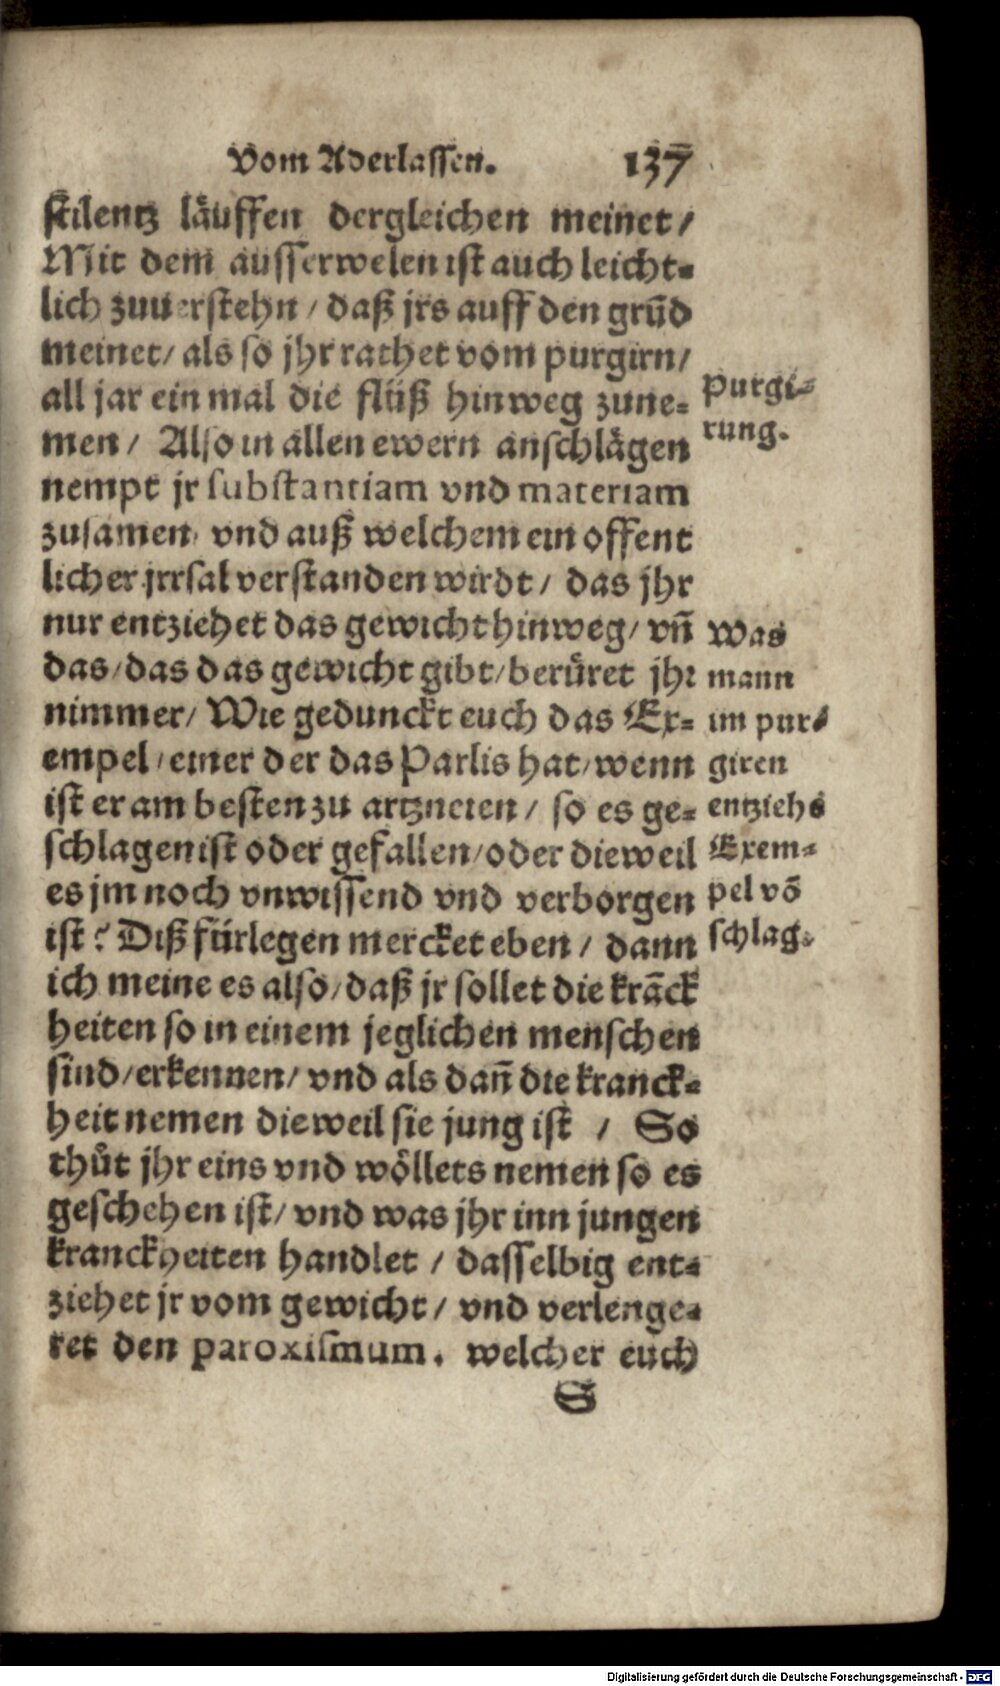 Vom Aderlassen. 137
stilentz läuffen dergleichen meinet /
Mit dem ausserwelen ist auch leicht-
lich zuuerstehn / daß jrs auff den grūd
meinet / als so jhr rathet vom purgirn /
all jar ein mal die flüß hinweg zune-
men / Also in allen ewern anschlägen
nempt jr substantiam vnd materiam
zusamen / vnd auß welchem ein offent
licher jrrsal verstanden wirdt / das jhr
nur entziehet das gewicht hinweg / vn̄
das / das das gewicht gibt / berüret jhr
nimmer / Wie gedunckt euch das Ex-
empel / einer der das Parlis hat / wenn
ist er am besten zu artzneien / so es ge-
schlagen ist oder gefallen / oder dieweil
es jm noch vnwissend vnd verborgen
ist? Diß fürlegen mercket eben / dann
ich meine es also / daß jr sollet die krāck
heiten so in einem jeglichen menschen
sind / erkennen / vnd als dan̄ die kranck-
heit nemen dieweil sie jung ist / So
thůt jhr eins vnd wöllets nemen so es
geschehen ist / vnd was jhr inn jungen
kranckheiten handlet / dasselbig ent-
ziehet jr vom gewicht / vnd verlenge-
ret den paroxismum. welcher euch
S
Purgi-
rung.
Was
mann
im pur-
giren
entziehs
Exem-
pel vō
schlag.
Digitalisierung gefördert durch die Deutsche Forschungsgemeinschaft - DFG